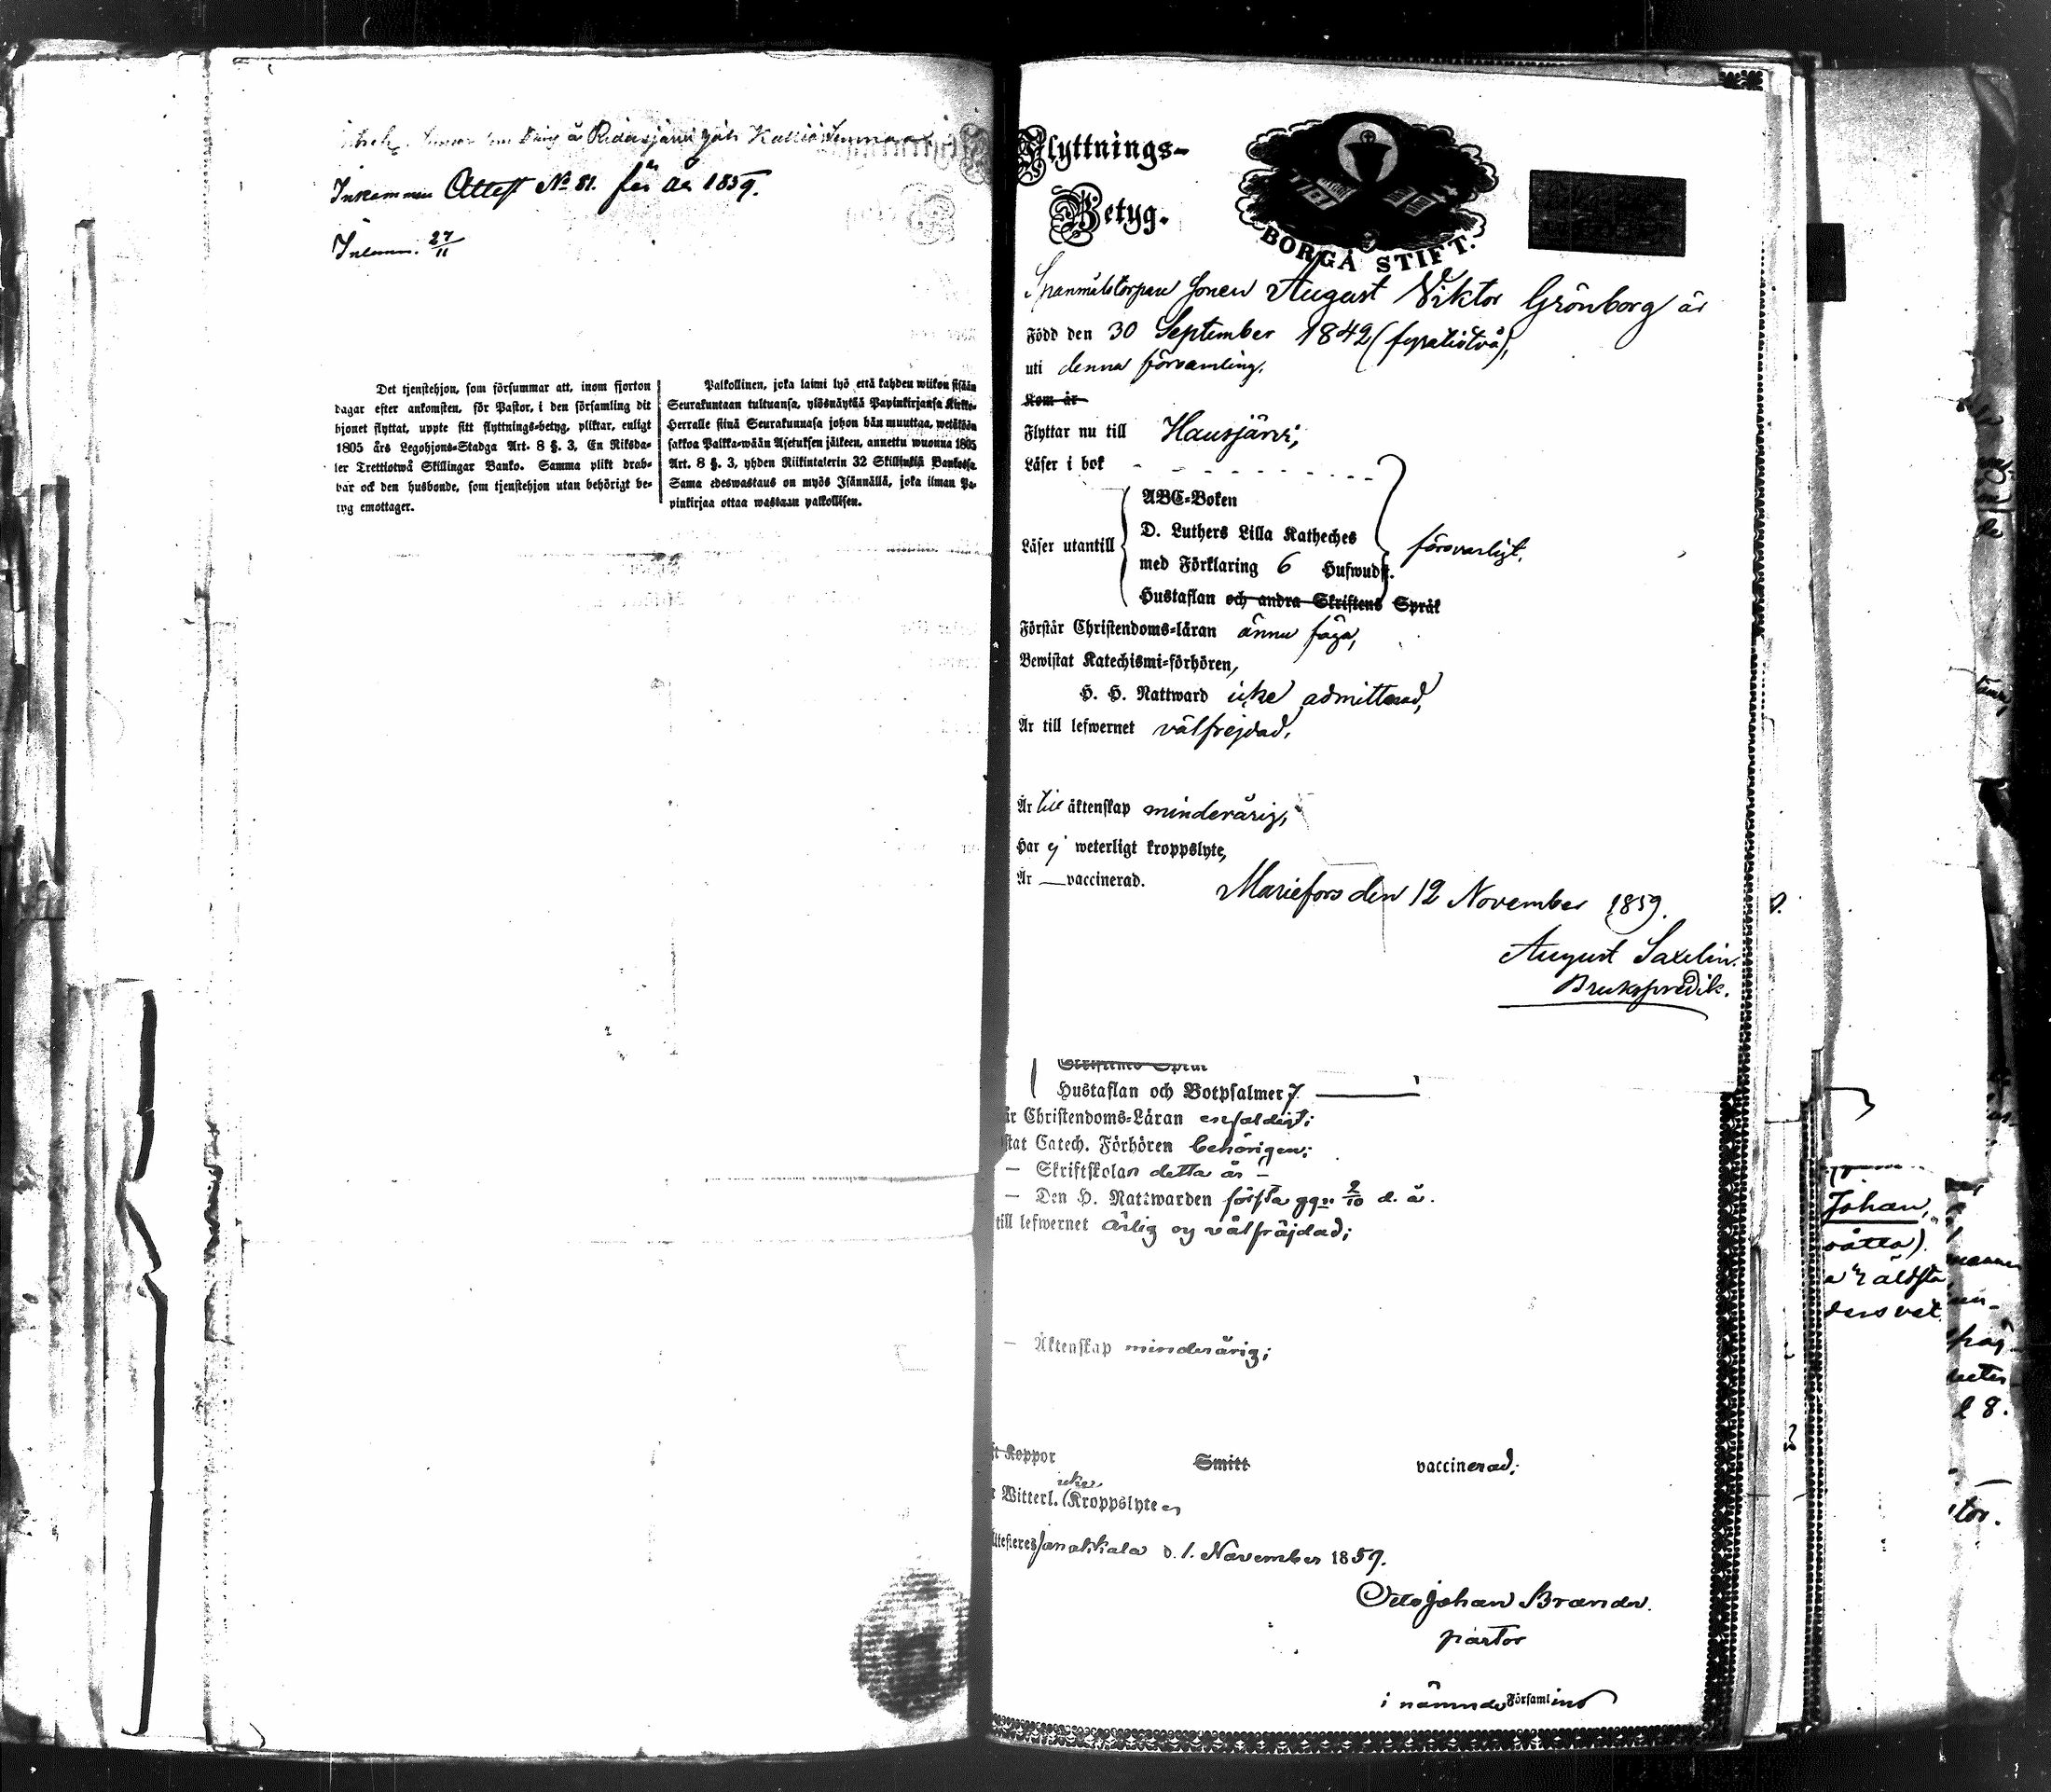 å Ridasjärvi
Inkommen Attest No 81. för år 1859.
Inlemn. 27/11
Det tjenstehjon, som försummar att, inom fjorton
dagar efter ankomsten, för Pastor, i den församling dit
hjonet flyttat, uppte sitt flyttnings-betyg, pliktar, enligt
1805 års Legohjons-Stadga Art. 8 §. 3, En Riksda-
ler Trettiotwå Skillingar Banko. Samma plikt drab-
bar ock den husbonde, som tjenstehjon utan behörigt be-
tyg emottager.
Palkollinen, joka laimi lyö että kahden wiikon sisään
Seurakuntaan tultuansa, ylösnäyttää Papinkirjansa Kirkko-
Herralle siinä Seurakunnasa johon hän muuttaa, wetäköön
sakkoa Palkka-wään Asetuksen jälkeen, annettu wuonna 1805
Art. 8 §. 3, yhden Riikintalerin 32 Skillinkiä Bankosa
Sama edeswastaus on myös Isännällä, joka ilman Pa-
pinkirjaa ottaa wastaan palkollisen.
Flyttnings-
Betyg.
BORGÅ STIFT.
Spanmålstorpare sonen August Viktor Grönborg är
Född den 30 September 1842 (fyratiotvå),
uti denna församling.
Kom år
Flyttar nu till Hausjärvi,
Läser i bok
ABC-Boken
D. Luthers Lilla Katheches
Läser utantill
försvarligt.
med Förklaring 6 Hufwudst.
Hustaflan och andra Skriftens Språk
Förstår Christendoms-läran ännu föga,
Bewistat Katechismi-förhören,
H. H. Nattward icke admitterad,
Är till lefwernet välfrejdad.
Är till äktenskap minderårig,
Har ej weterligt kroppslyte,
Är vaccinerad.
Mariefors den 12 November 1859.
August Saxelin.
Brukspredik.
Skriftens Språk
Hustaflan och Botpsalmer 7.
är Christendoms-Läran enfaldigt;
stat Catech. Förhören behörigen;
— Skriftskolan detta år —
— Den H. Nattwarden första ggn 2/10 d. å.
till lefwernet ärlig og välfräjdad;
— Äktenskap minderårig;
ft Koppor Smitt vaccinerad;
icke
r Witterl. Kroppslyte
Attesteres Janakkala d. 1. November 1859.
Otto Johan Brander.
pastor
i nämnde Församling
Johan,
åtta)
a är äldsta